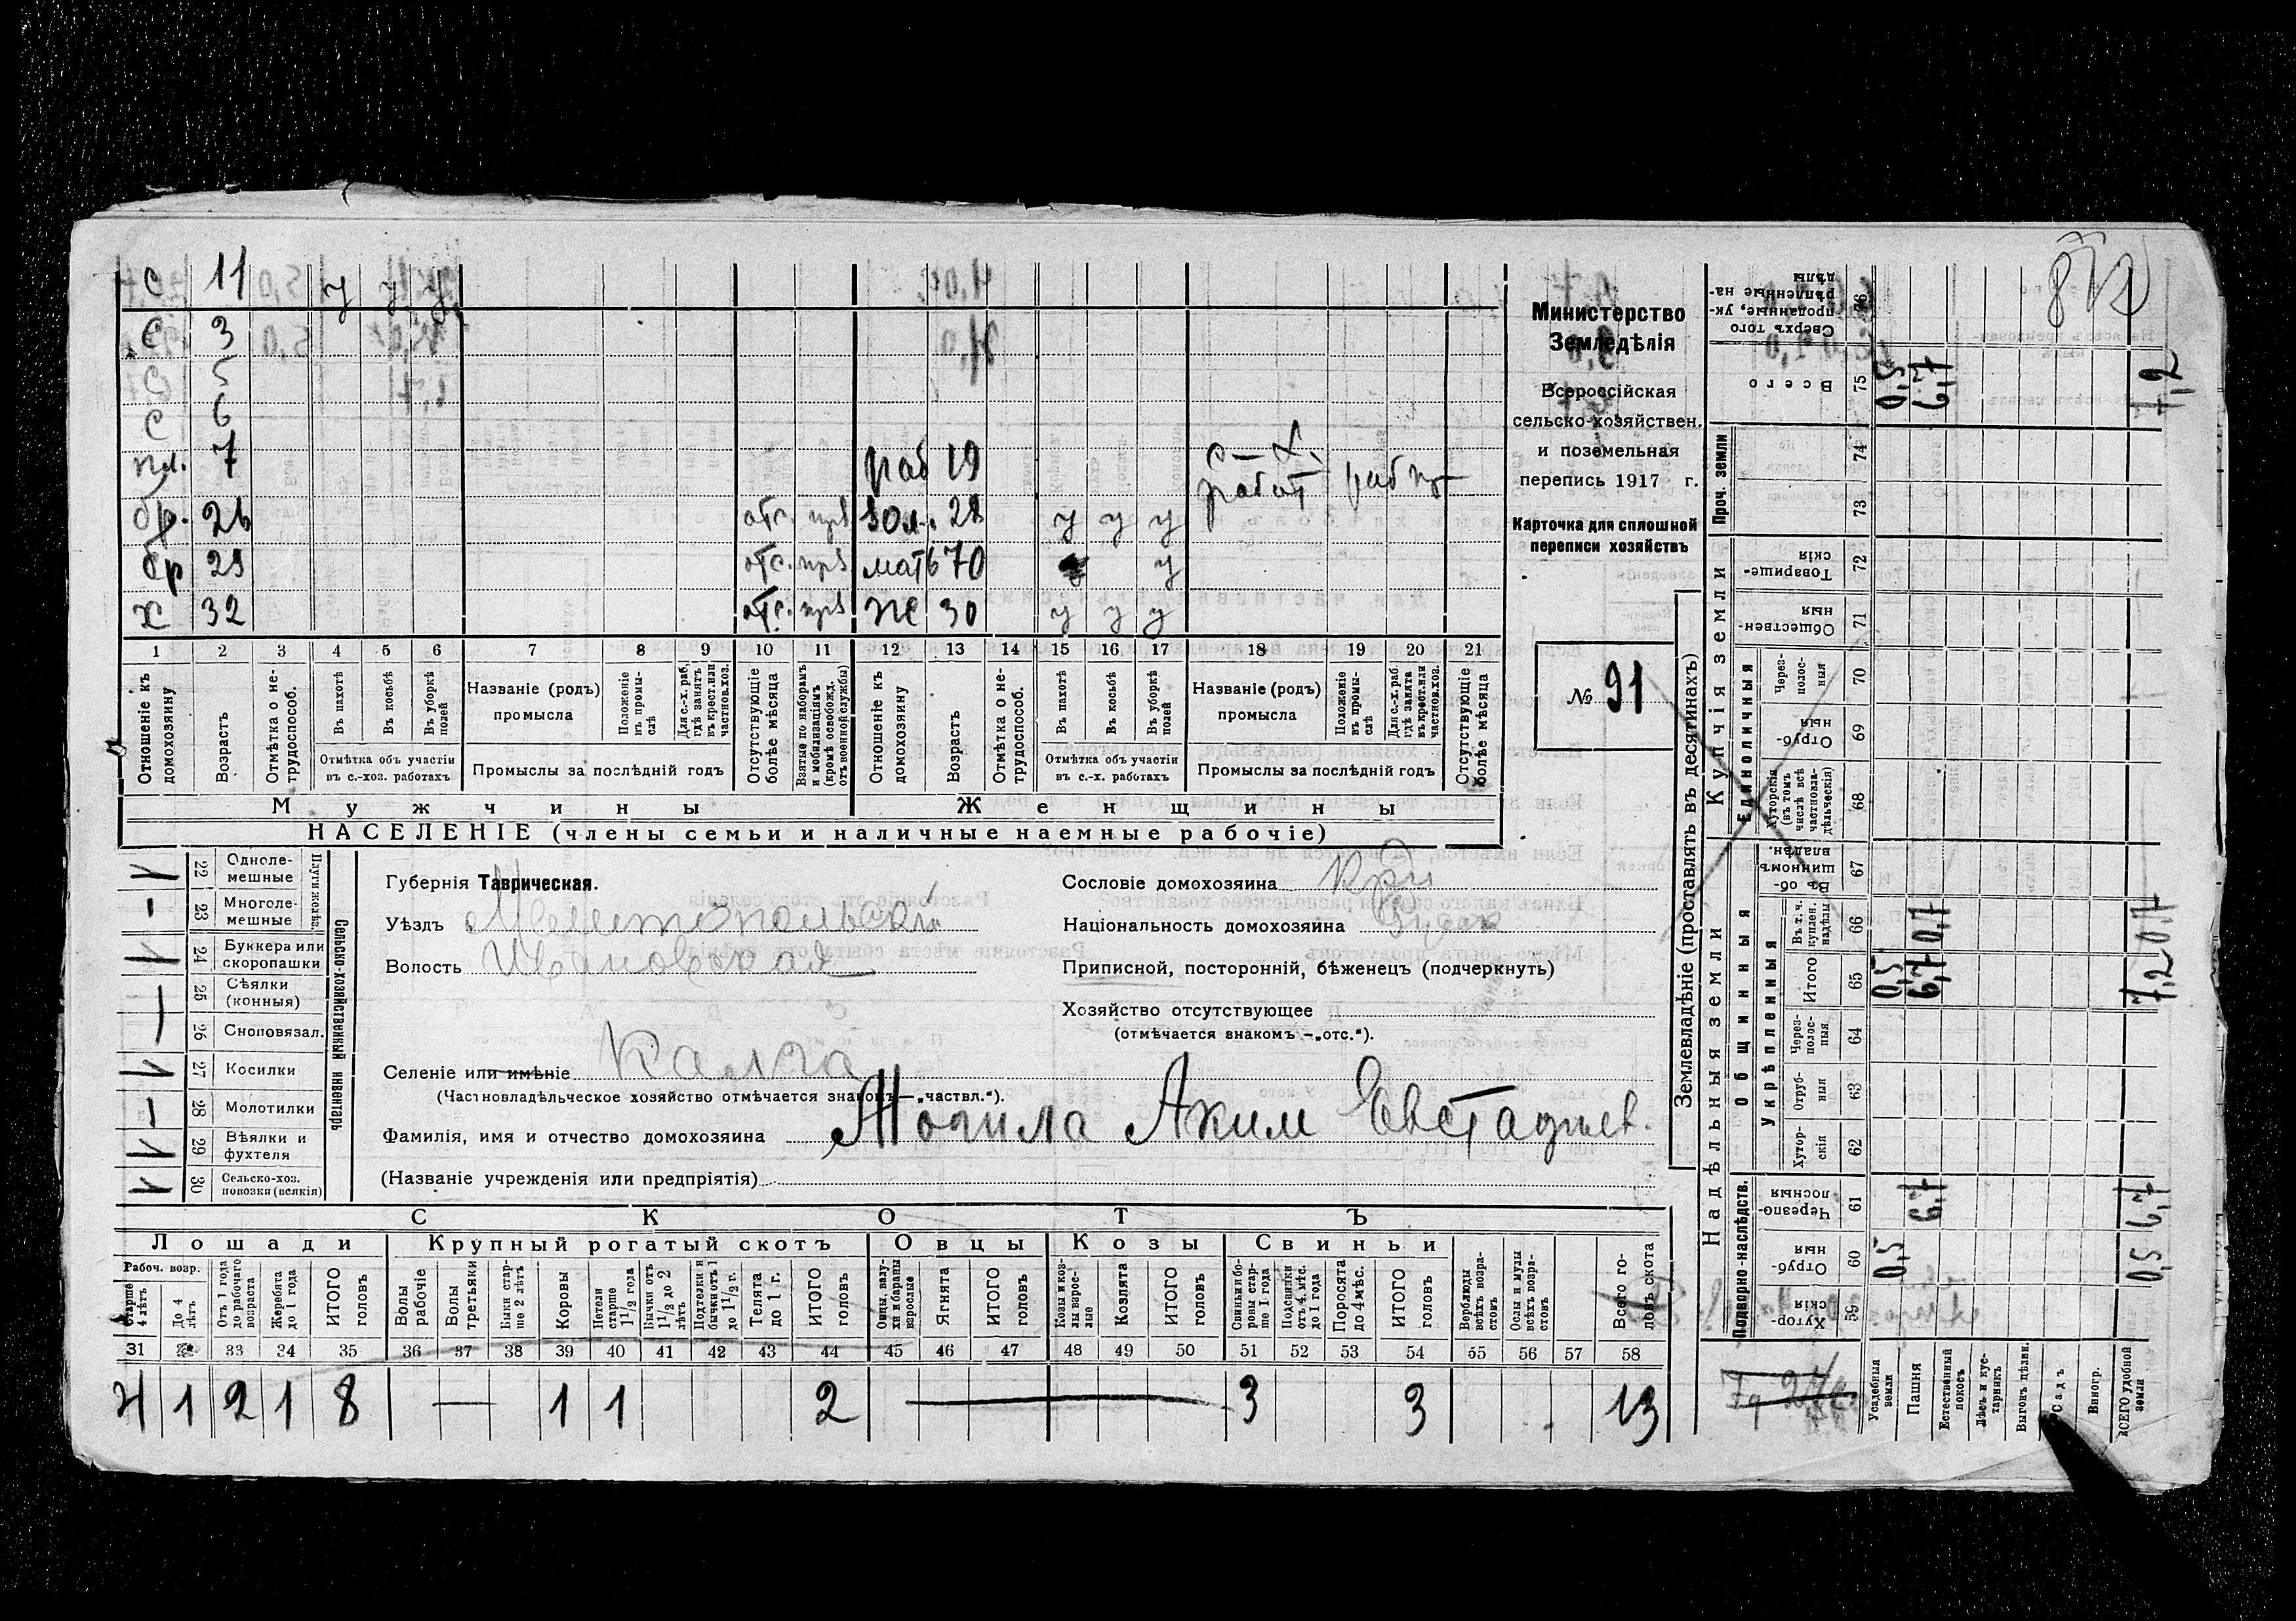 с 11 у у у
с 3
с 5
с 6
пл. 7 раб 19 с-х. работ
бр. 26 отс. 28 у у у
бр 29 отс. мать 70 у
х 32 отс. же 30 у у у
1 2 3 4 5 6 7 8 9 10 11 12 13 14 15 16 17 18 19 20 21
Отношеніе къ домохозяину
Возрастъ
Отмѣтка о не-трудоспособ.
Въ пахотѣ
Въ косьбѣ
Въ уборкѣ полей
Отмѣтка объ участіи
въ с.-хоз. работахъ
Названіе (родъ)
промысла
Положеніе въ промы-слѣ
Для с.-х. раб. гдѣ занятъ въ крест. или частнов. хоз.
Промыслы за послѣдній годъ
Отсутствующіе болѣе мѣсяца
Взятые по наборамъ и мобилизаціямъ (кромѣ освобожд. отъ военной службы)
Отношеніе къ домохозяину
Возрастъ
Отмѣтка о не-трудоспособ.
Въ пахотѣ
Въ косьбѣ
Въ уборкѣ полей
Отмѣтка объ участіи
въ с.-х. работахъ
Названіе (родъ)
промысла
Положеніе въ промы-слѣ
Для с.-х. раб. гдѣ занята въ крест. или частнов. хоз.
Промыслы за послѣдній годъ
Отсутствующіе болѣе мѣсяца
Мужчины Женщины
НАСЕЛЕНІЕ (члены семьи и наличные наемные рабочіе)
Министерство
Земледѣлія
Всероссійская
сельско-хозяйствен.
и поземельная
перепись 1917 г.
Карточка для сплошной
переписи хозяйствъ
№ 91
Сельско-хозяйственный инвентарь
Плуги желѣз.
22 Одноле-мешные 1
23 Многоле-мешные -
24 Буккера или скоропашки 1
25 Сѣялки (конныя) —
26 Сноповязал.
27 Косилки 1
28 Молотилки -
29 Вѣялки и фухтеля 1
30 Сельско-хоз. повозки (всякія) 1
Губернія Таврическая.
Уѣздъ Мелитопольскій
Волость Ивановская
Селеніе или имѣніе Калга
(Частновладѣльческое хозяйство отмѣчается знакомъ —„частвл.“).
Фамилія, имя и отчество домохозяина Могила Аким Евстафиев.
(Названіе учрежденія или предпріятія)
Сословіе домохозяина Кр.
Національность домохозяина Русск
Приписной, посторонній, бѣженецъ (подчеркнуть)
Хозяйство отсутствующее
(отмѣчается знакомъ —„отс.“).
СКОТЪ
Лошади Крупный рогатый скотъ Овцы Козы Свиньи
Рабоч. возр.
Старше 4 лѣтъ
До 4 лѣтъ
Отъ 1 года до рабочаго возраста
Жеребята до 1 года
ИТОГО головъ
Волы рабочіе
Волы третьяки
Быки стар-ше 2 лѣтъ
Коровы
Нетели старше 1 1/2 года
Бычки отъ 1 1/2 до 2 лѣтъ
Подтелки и бычки отъ 1 до 1 1/2 г.
Телята до 1 г.
ИТОГО головъ
Овцы, валу-хи и бараны взрослые
Ягнята
ИТОГО головъ
Козы и коз-лы взрос-лые
Козлята
ИТОГО головъ
Свиньи и бо-ровы стар-ше 1 года
Подсвинки отъ 4 мѣс. до 1 года
Поросята до 4 мѣс.
ИТОГО головъ
Верблюды всѣхъ возра-стовъ
Ослы и мулы всѣхъ возра-стовъ
Всего го-ловъ скота
31 32 33 34 35 36 37 38 39 40 41 42 43 44 45 46 47 48 49 50 51 52 53 54 55 56 57 58
4 1 2 1 8 — 1 1 2 — 3 3 13
Землевладѣніе (проставлять въ десятинахъ)
Надѣльныя земли Купчія земли Проч. земли
Подворно-наслѣдств.
Общинныя
Укрѣпленныя
Единоличныя
59 Хутор-скія
60 Отруб-ныя 0,5 0,5
61 Черезпо-лосныя 6,7 6,7
62 Хутор-скія
63 Отруб-ныя
64 Через-полос-ныя
65 Итого 0,5 6,7 7,2
66 Въ т. ч. куплен. надѣлы 0,7 0,7
67 Въ об-щинномъ владѣн.
68 Хуторскія (въ томъ числѣ всѣ частновла-дѣльческія)
69 Отруб-ныя
70 Через-полос-ныя
71 Обществен-ныя
72 Товарище-скія
73
74
75 Всего 0,5 6,7 7,2
76 Сверхъ того проданные, ук-рѣпленные на-дѣлы
Усадебныя земли
Пашня
Естественный покосъ
Лѣсъ и кус-тарникъ
Выгонъ цѣлин.
Садъ
Виногр.
ВСЕГО удобной земли